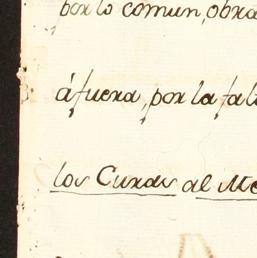 por lo comun, obra
áfuera, por la fal
los Curas al Me